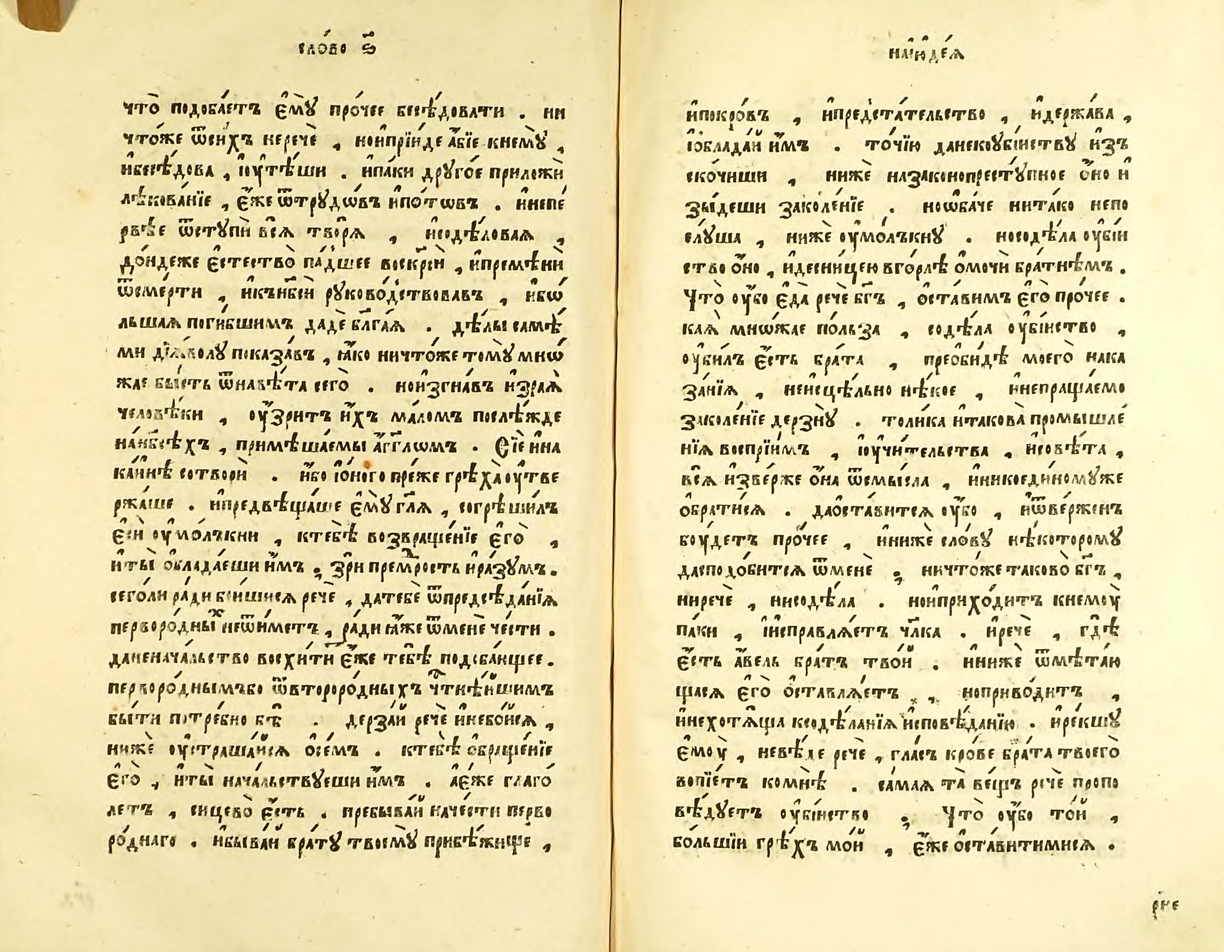 сло́во ѕ҃
что̀ подоба́етъ є҆мꙋ̀ про́чее бесѣ́довати . ни
что́же ѿси́хъ неречѐ , нои҆прїи́де а҆́бїе кнемꙋ̀ ,
и҆бесѣ́дова , и҆ꙋ҆тѣ́ши . и҆па́ки дрꙋго́е приложѝ
лѣкова́нїе , є҆́же ѿтрꙋдо́въ и҆по́тѡвъ . и҆непе
рвѣ́е ѿстꙋпѝ всѧ̀ творѧ̀ , и҆содѣ́ловаѧ ,
до́ндеже є҆стество̀ па́дшее воскр҃сѝ , и҆премѣнѝ
ѿсме́рти , и҆кън҃бсѝ рꙋково́дствовавъ , и҆бѡ́
льшаѧ поги́бшимъ дадѐ бл҃га́ѧ . дѣ́лы самѣ́
ми дїа́волꙋ показа́въ , ꙗ҆́ко ничто́же томꙋ̀ мнѡ́
жае бы́сть ѿнавѣ́та сего̀ . нои҆згна́въ и҆з̾раѧ̀
человѣ́ки , ꙋ҆́зритъ и҆́хъ ма́ломъ послѣ́жде
нан҃бсѣ́хъ , примѣша́емы а҆́гг҃лѡмъ . Сїѐ и҆на
ка́инѣ сотворѝ . и҆́бо ю҆́ного пре́же грѣха̀ ꙋ҆тве
ржа́ше . и҆предвѣща́ше є҆мꙋ̀ гл҃ѧ , согрѣши́лъ
є҆сѝ ᲂу҆мо́лъкни , ктебѣ̀ возвраще́нїе є҆го̀ ,
и҆ты̀ ѡ҆блада́еши и҆́мъ . зрѝ премⷣрость и҆ра́зꙋмъ .
сего́ли ради бои́шисѧ речѐ , датебѐ ѿпредсѣда́нїѧ
перворо́дныⷯ неѿи́метъ , ра́ди ꙗ҆́же ѿменѐ че́сти .
данена́чальство восхи́ти є҆́же тебѣ̀ подоба́ющее .
перворо́днымъбо ѿвторо́родныхъ чтⷭ҇нѣ́йшимъ
бы́ти потре́бно бѣ̀ . дерза́й речѐ и҆небо́йсѧ ,
нижѐ ᲂу҆страша́йсѧ ѡ҆се́мъ . ктебѣ̀ ѡ҆браще́нїе
є҆го̀ , и҆ты̀ нача́льствꙋеши и҆́мъ . а҆є҆́же глаго
летъ , си́цево є҆́сть . пребыва́й начести перво
ро́днаго . и҆быва́й бра́тꙋ твоемꙋ̀ прибѣ́жище ,
наї҆ꙋде́ѧ
и҆покро́въ , и҆предста́тельство , и҆держа́ва ,
ї҆ѡблада́й и҆́мъ . то́чїю данекоꙋбі́йствꙋ и҆зъ
ско́чиши , нижѐ назаконопрестꙋ́пное ѻ҆но̀ и҆
зы́деши заколе́нїе . нооба́че нита́ко непо
слꙋ́ша , нижѐ ᲂу҆мо́лъкнꙋ . носодѣ́ла ᲂу҆бі́й
ство ѻ҆но̀ , и҆десни́цею вго́рлѣ ѡ҆мочѝ бра́тнѣмъ .
Что̀ ᲂу҆́бо є҆да̀ речѐ бг҃ъ , ѡ҆ста́вимъ є҆го̀ про́чее .
ка́ѧ мно́жае по́льза , содѣ́ла ᲂу҆бі́йство ,
ᲂу҆би́лъ є҆́сть бра́та , преѡби́дѣ моего̀ нака
за́нїѧ , неи҆сцѣ́льно нѣ́кое , и҆непроща́емо
заколе́нїе де́рзнꙋ . толи́ка и҆такова̀ промышле́
нїѧ воспрїи́мъ , ї҆ꙋчи́тельства , и҆совѣ́та ,
всѧ̀ и҆зве́рже ѻ҆на̀ ѿсмы́сла , и҆никоеди́номꙋже
ѡ҆брати́сѧ . даѡста́витсѧ ᲂу҆́бо , и҆ѿве́рженъ
бᲂу́детъ про́чее , и҆нижѐ сло́вꙋ нѣ́которомꙋ
даспо́добитсѧ ѿменѐ . ничто́же таково̀ бг҃ъ ,
ниречѐ , нисодѣ́ла . нои҆прихо́дитъ кнемᲂу̀
па́ки , і҆исправлѧ́етъ чл҃ка . и҆речѐ , гдѣ̀
є҆́сть а҆́вель бра́тъ тво́й . и҆нижѐ ѿмѣта́ю
щасѧ є҆го̀ ѡ҆ставлѧ́етъ , ноприво́дитъ ,
и҆нехотѧ́ща ксодѣ́ланїѧ и҆сповѣ́данїю . и҆ре́кшꙋ
є҆мᲂу̀ , невѣ́де речѐ , гла́съ кро́ве бра́та твоего̀
вопїе́тъ комнѣ̀ . са́маѧ та̀ ве́щъ речѐ пропо
вѣ́дꙋетъ ᲂу҆бі́йство . Что̀ ᲂу҆́бо то́й ,
бо́льшїи грѣ́хъ мо́й , є҆́же ѡ҆ста́витимисѧ .
рн҃е